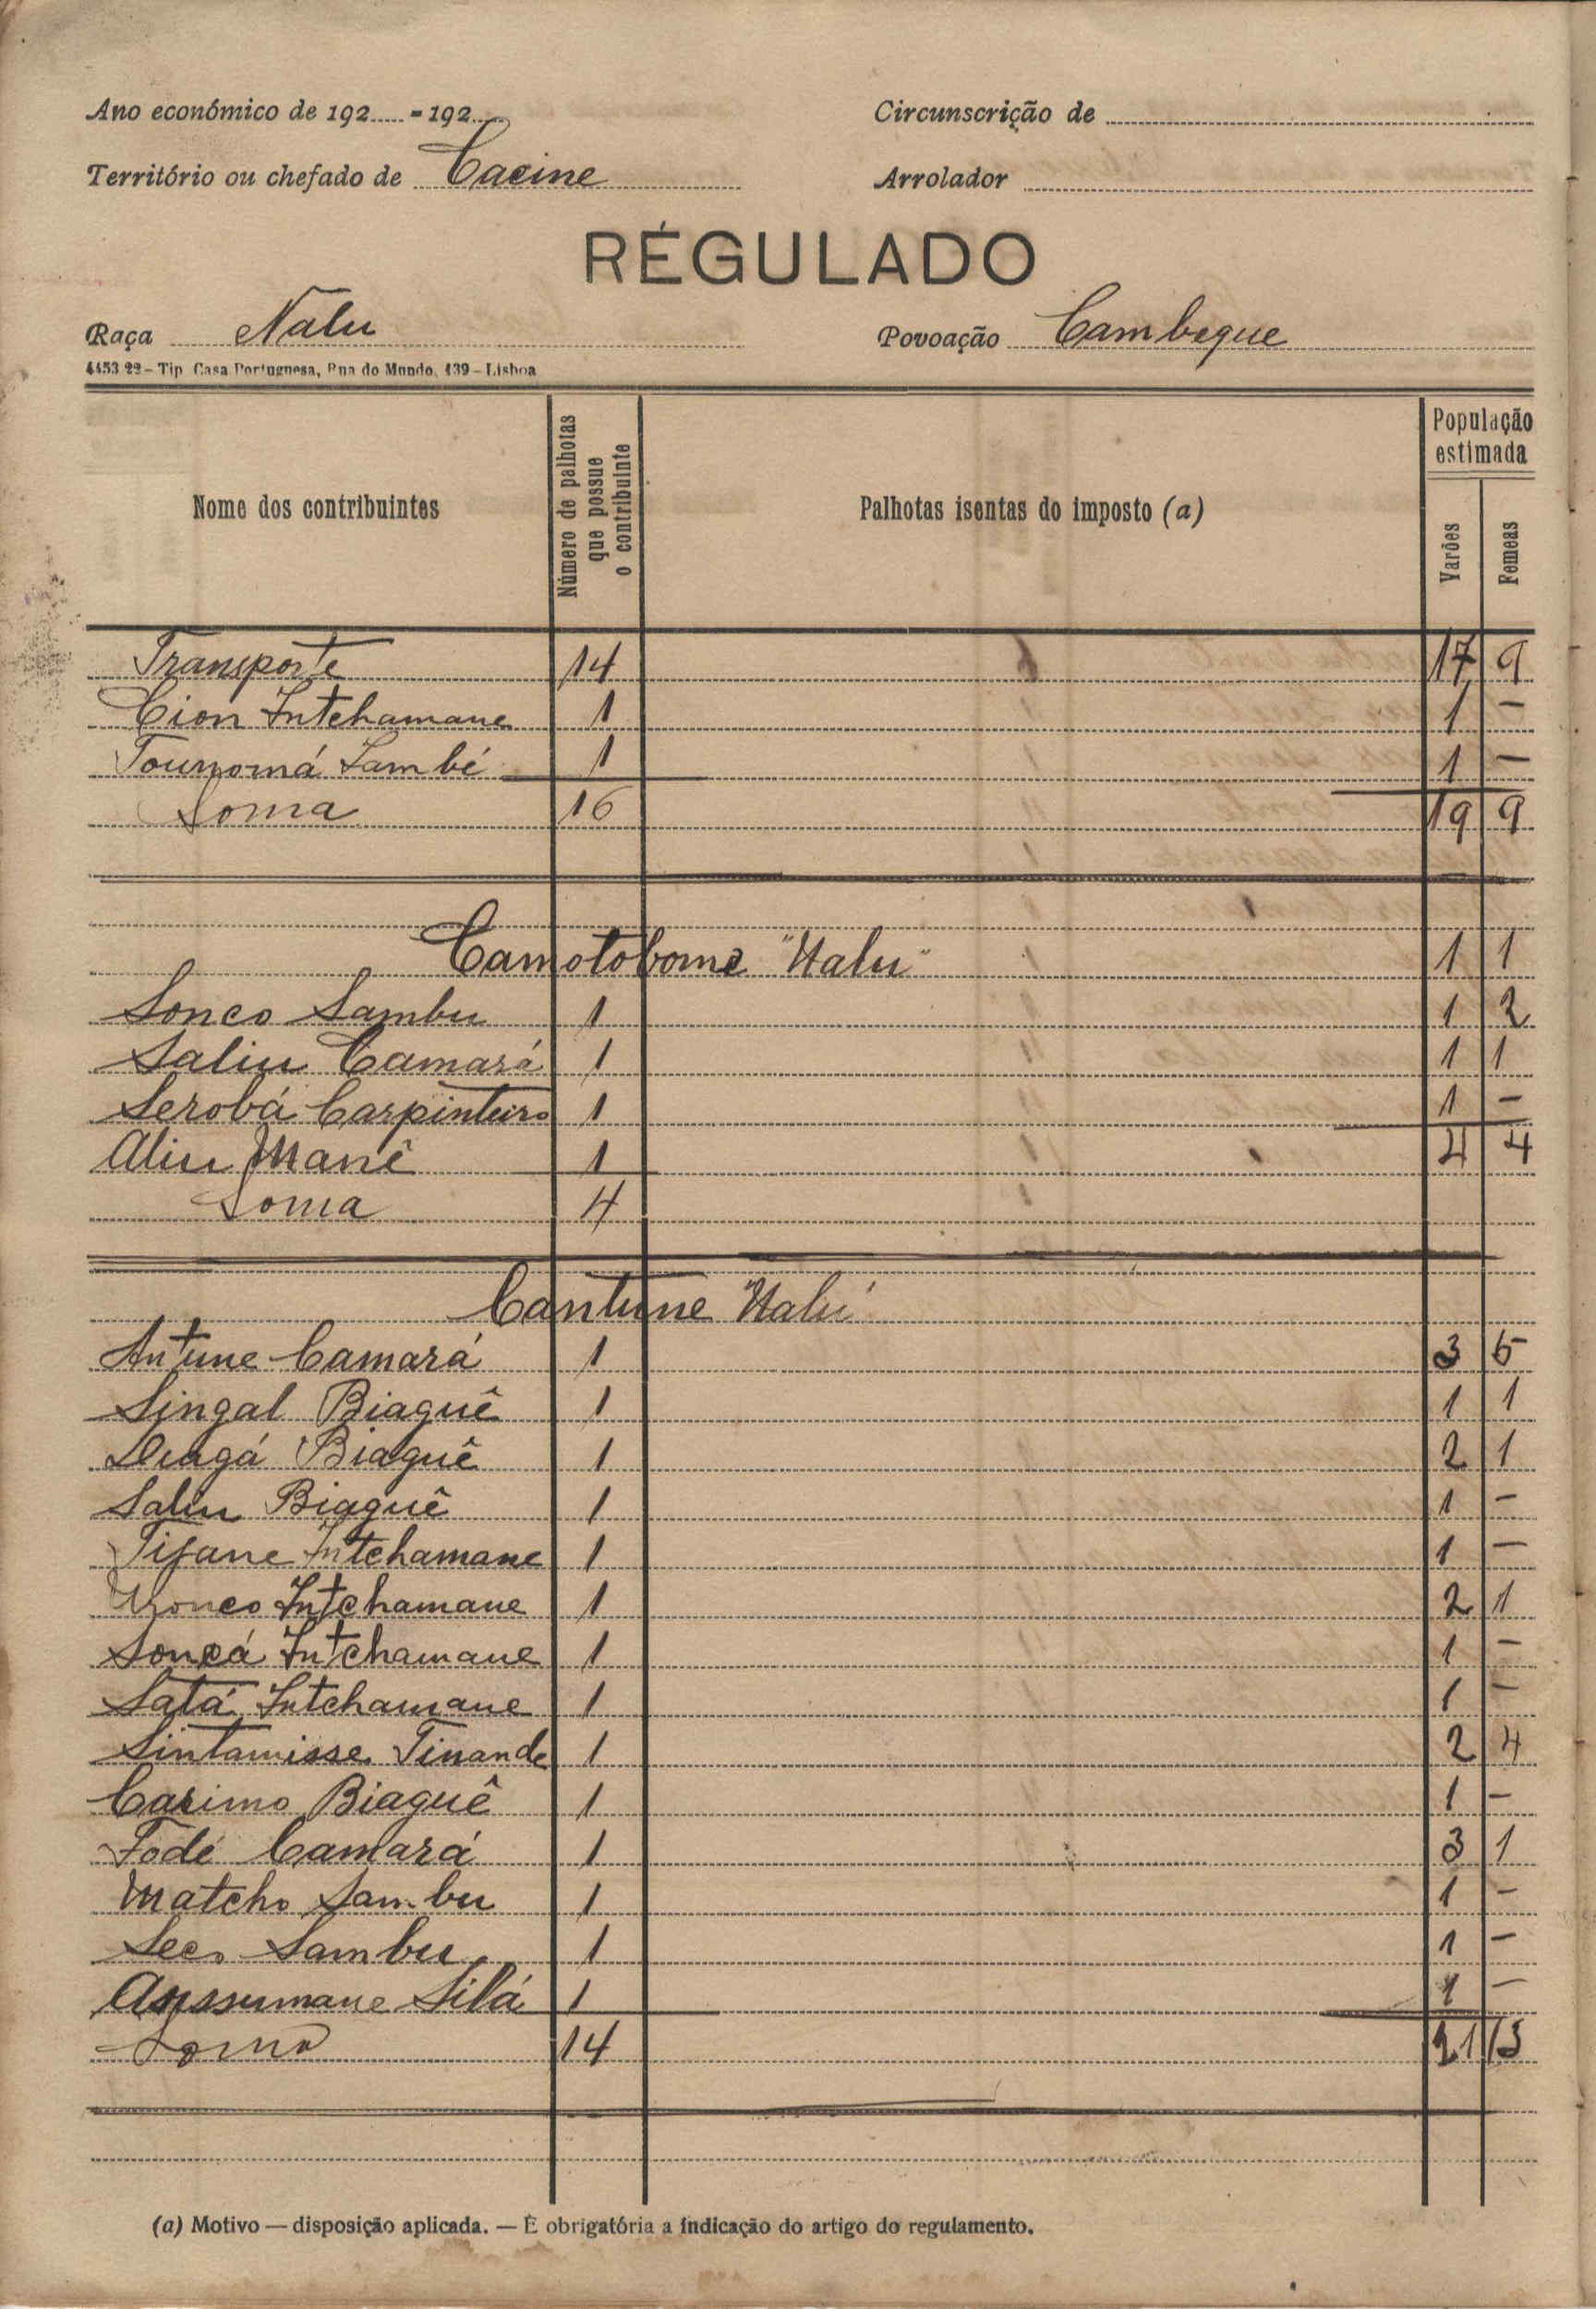 Ano económico de 192..... - 192.....
Circunscrição de
Território ou chefado de Cacine
Arrolador
RÉGULADO
Raça Nalu
Povoação Cambeque
4453 22 – Tip. Casa Portuguesa, Rua do Mundo, 139 – Lisboa
Nome dos contribuintes
Número de palhotas que possue o contribuinte
Palhotas isentas do imposto (a)
População estimada
Varões
Femeas
Transporte 14 17 9
Cion Intchamane 1 1 –
Tounomá Sambé 1 1 –
Soma 16 19 9
Camotobome "Nalu" 1 1
Sonco Sambu 1 1 2
Saliu Camará 1 1 1
Serobá Carpinteiro 1 1 –
Aliu Mané 1 4 4
Soma 4
Cantune "Nalú"
Antune Camará 1 3 5
Singal Biaguê 1 1 1
Biaguê 1 2 1
Saliu Biaguê 1 1 –
Tifane Intchamane 1 1 –
Intchamane 1 2 1
Soncá Intchamane 1 1 –
Satá Intchamane 1 1 –
Sintamisse Tinande 1 2 4
Carimo Biaguê 1 1 –
Fodé Camará 1 3 1
Matcho Sambu 1 1 –
Seco Sambu 1 1 –
Anssumane Silá 1 1 –
Soma 14 21 13
(a) Motivo — disposição aplicada. — É obrigatória a indicação do artigo do regulamento.